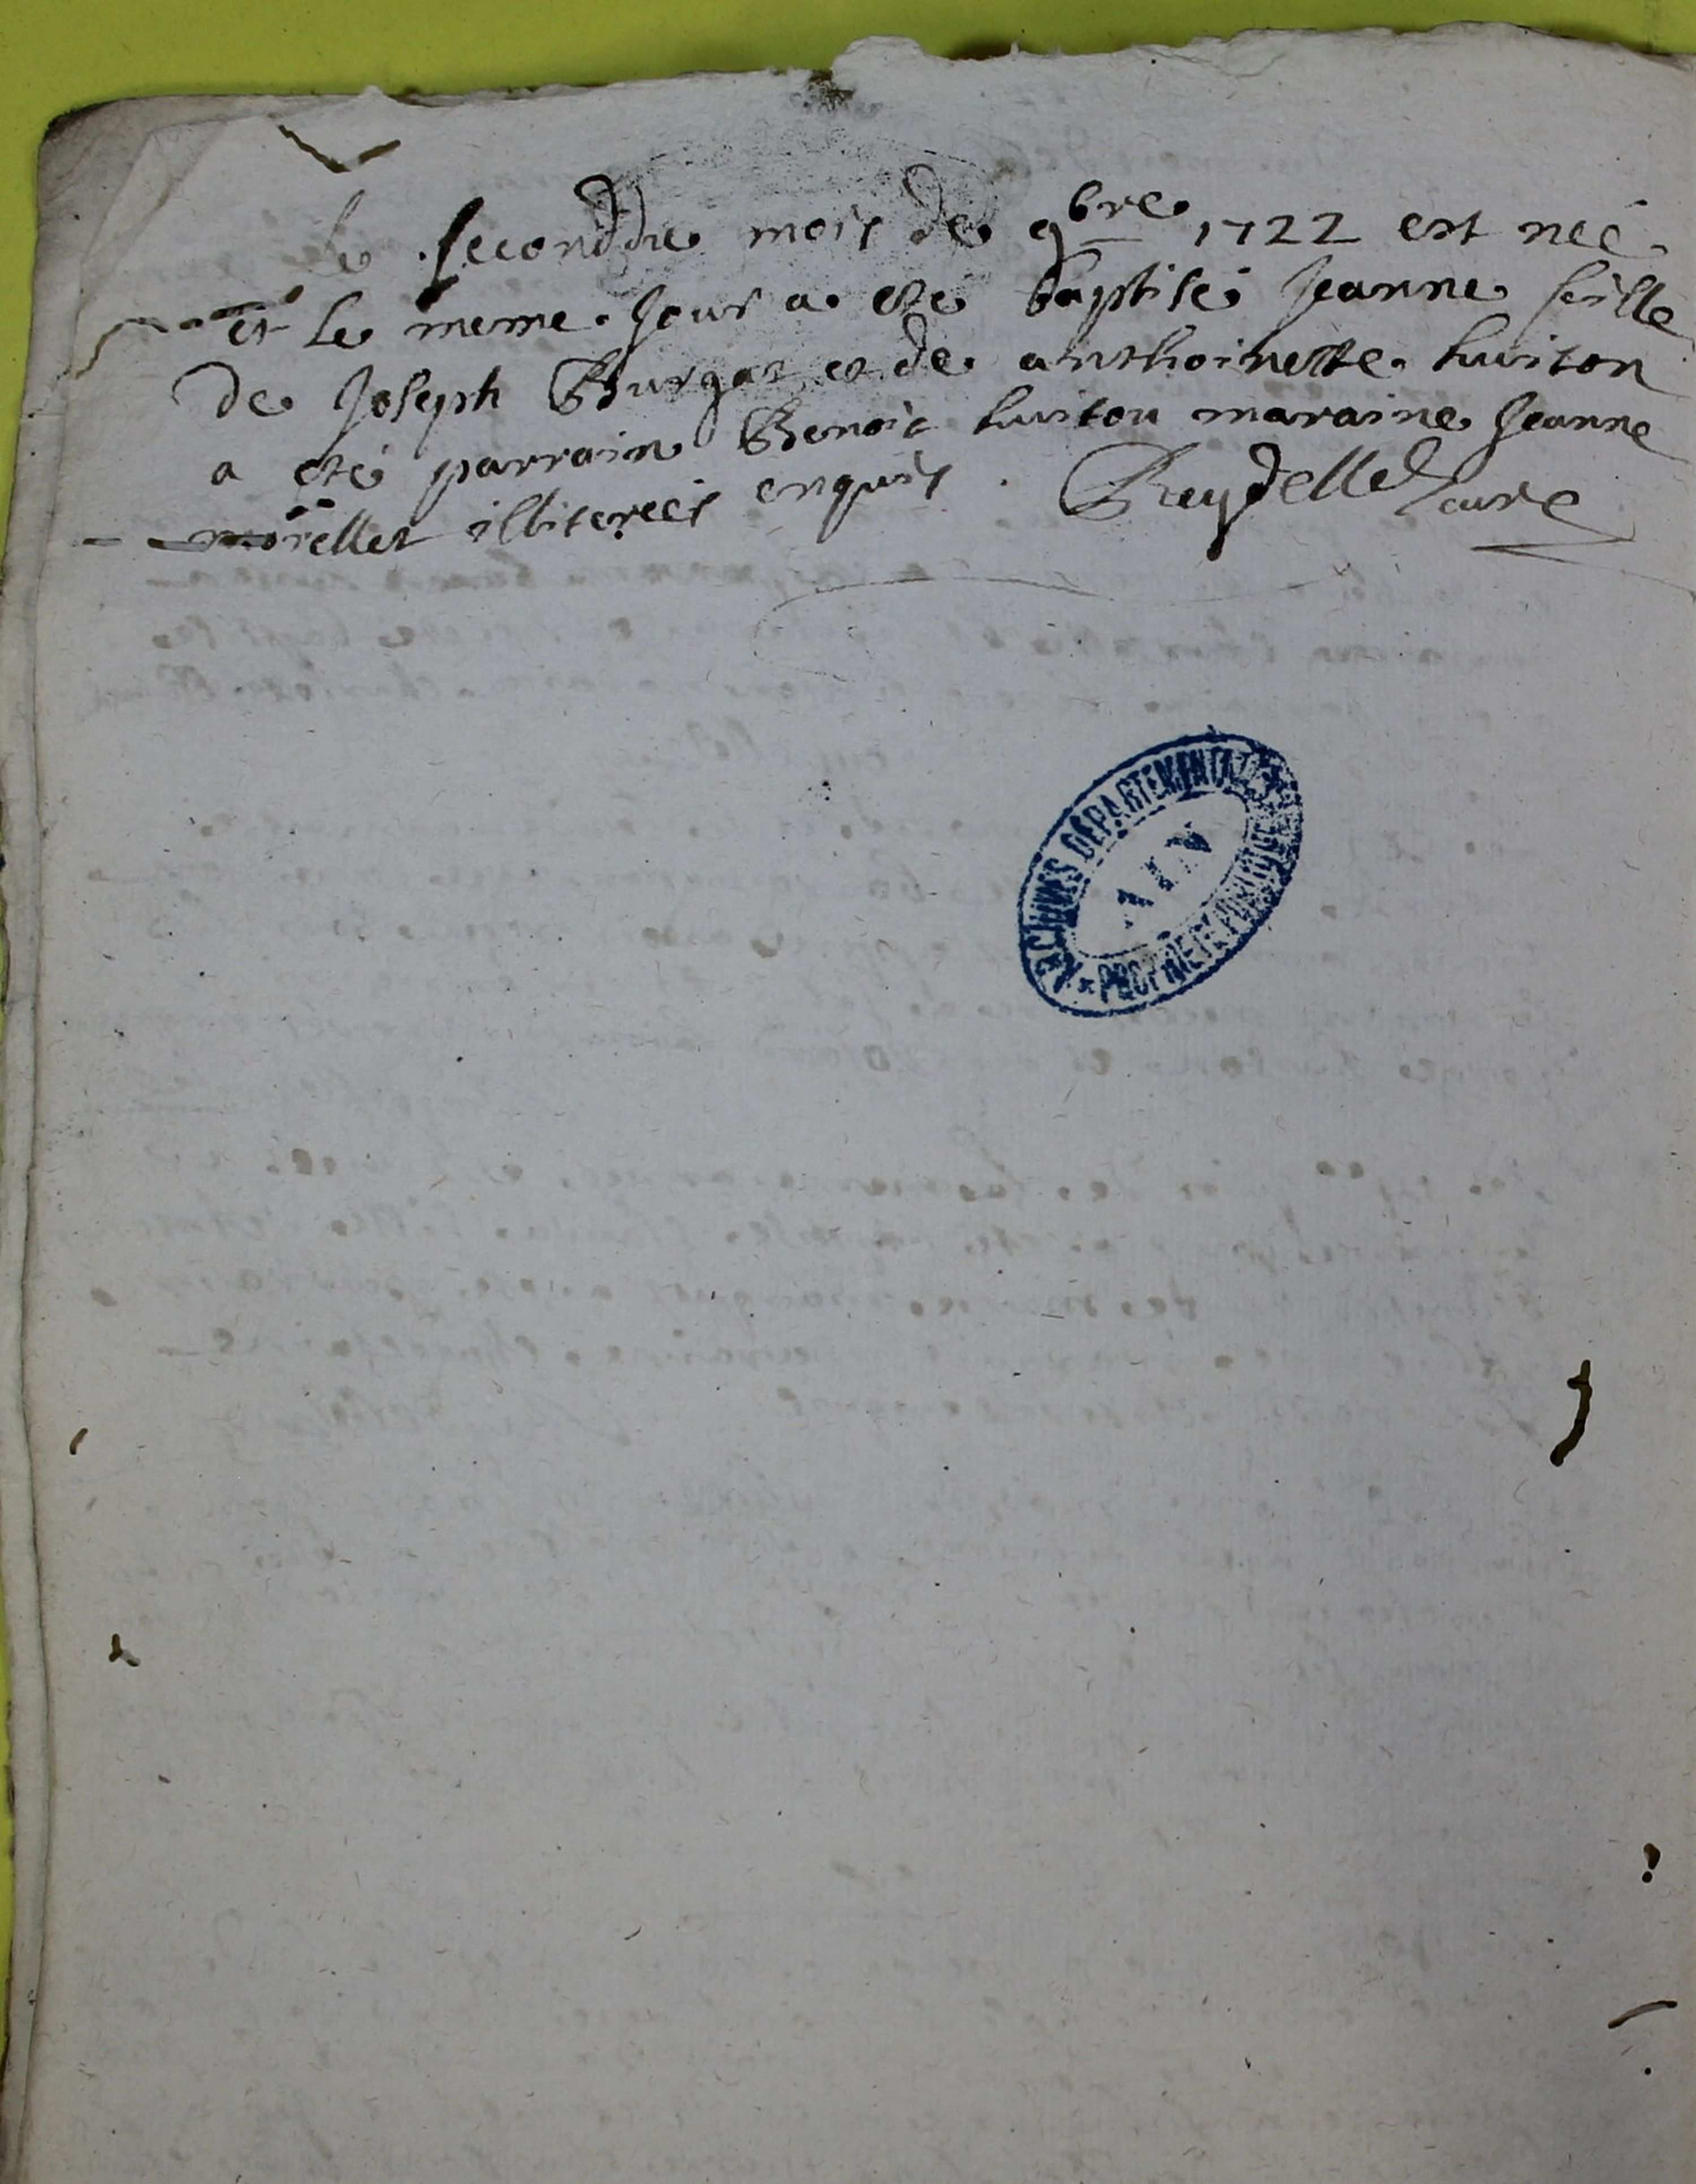 le second du mois de 9bre 1722 est neé
et le meme jour a eté baptisé jeanne fille
de joseph Burgat et de anthoinette huiton
a eté parrain Benoit huiton maraine jeanne
morellet illiterées enquis. Reydellet curé
ARCHIVES DEPARTEMENTALES
AIN
* PROPRIETE PUBLIQUE